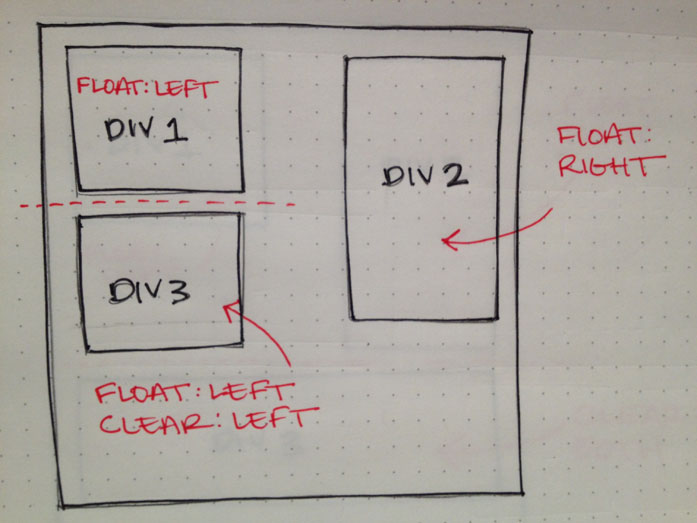 FLOAT: LEFT
DIV 1
DIV 2
FLOAT:
RIGHT
DIV 3
FLOAT: LEFT
CLEAR: LEFT